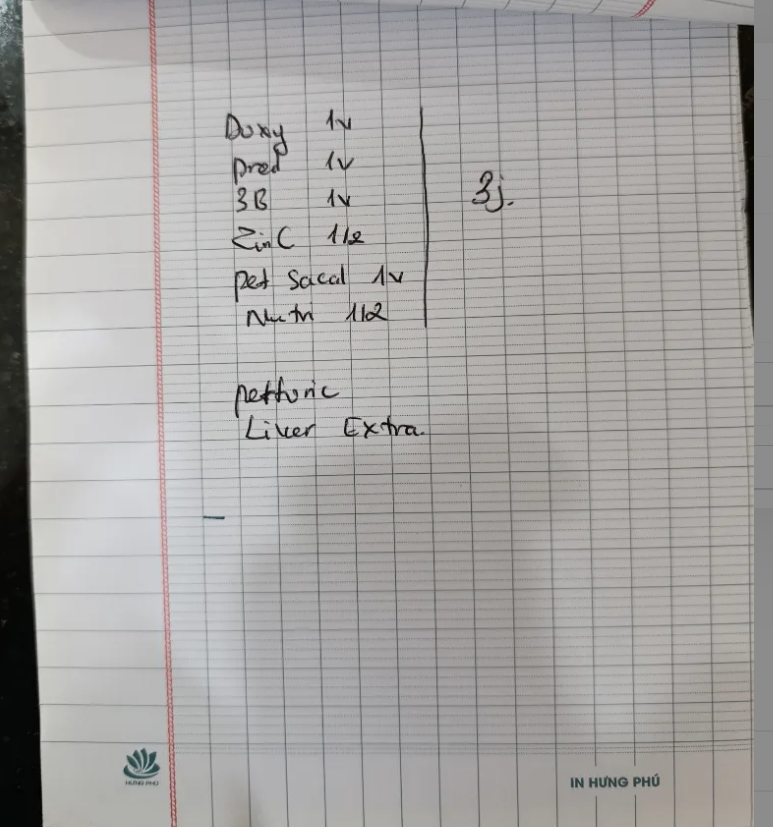 Doxy 1v
pred 1v
3B 1v
3j.
ZinC 1/2
pet Sacal 1v
Nutri 1/2
pettonic
Liver Extra.
HƯNG PHÚ
IN HƯNG PHÚ